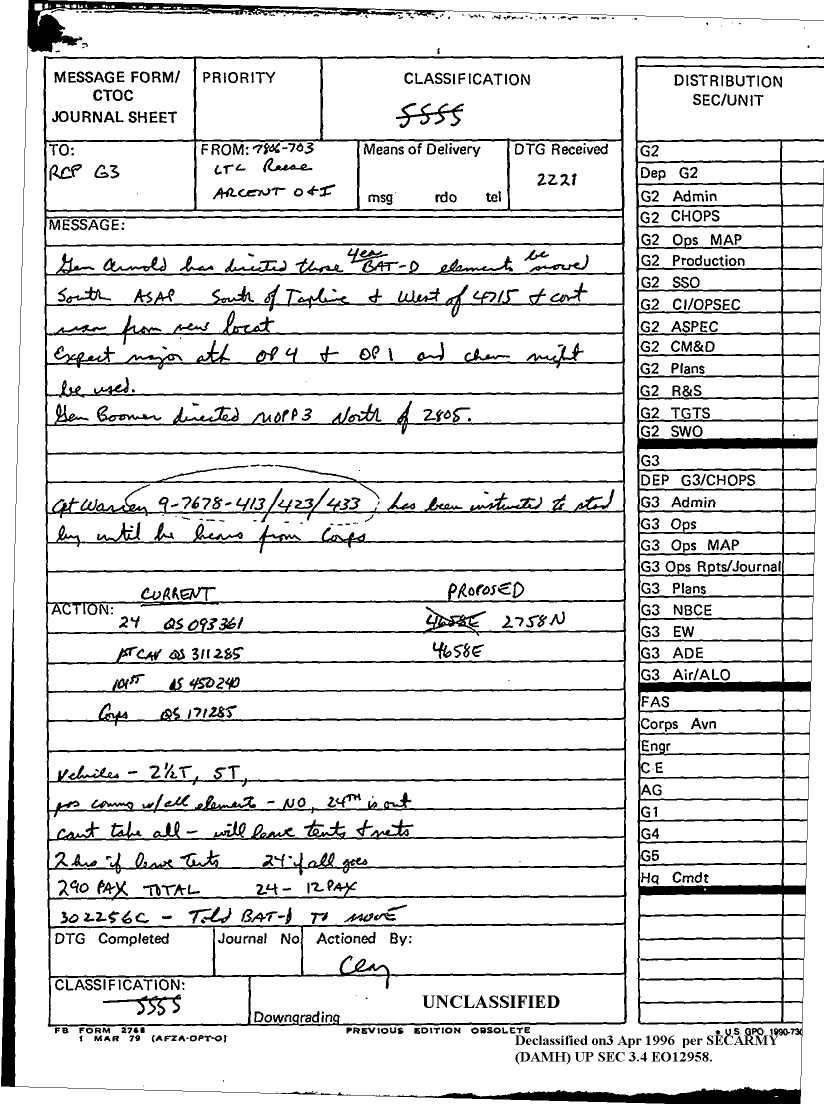 MESSAGE FORM/
CTOC
JOURNAL SHEET
PRIORITY
CLASSIFICATION
SSSS
TO:
RCP G3
FROM: 7806-703
LTC Reese
ARCENT O&I
Means of Delivery
msg rdo tel
DTG Received
2221
MESSAGE:
Gen Arnold has directed those 4ea BAT-D elements be moved
South ASAP South of Tapline & West of 4715 & cont
msn from new locat
Expect major atk OP4 & OP1 and chem might
be used.
Gen Boomer directed MOPP3 North of 2805.
Cpt Warren 9-7678-413/423/433; has been instructed to stand
by until he hears from Corps
CURRENT PROPOSED
ACTION:
24 QS 093361 4658E 2758N
1ST CAV QS 311285 4658E
101ST QS 450240
Corps QS 171285
Vehicles - 2½T, 5T,
pos comms w/all elements - NO, 24TH is out
cant take all - will leave tents & nets
2 hrs if leave tents 24 if all goes
290 PAX TOTAL 24 - 12 PAX
302256C - Told BAT-D TO MOVE
DTG Completed
Journal No
Actioned By:
Clay
CLASSIFICATION:
SSSS
Downgrading
UNCLASSIFIED
FB FORM 2768
1 MAR 79 (AFZA-DPT-O)
PREVIOUS EDITION OBSOLETE
* U.S. GPO, 1990-730
Declassified on3 Apr 1996 per SECARMY
(DAMH) UP SEC 3.4 EO12958.
DISTRIBUTION
SEC/UNIT
G2
Dep G2
G2 Admin
G2 CHOPS
G2 Ops MAP
G2 Production
G2 SSO
G2 CI/OPSEC
G2 ASPEC
G2 CM&D
G2 Plans
G2 R&S
G2 TGTS
G2 SWO
G3
DEP G3/CHOPS
G3 Admin
G3 Ops
G3 Ops MAP
G3 Ops Rpts/Journal
G3 Plans
G3 NBCE
G3 EW
G3 ADE
G3 Air/ALO
FAS
Corps Avn
Engr
C-E
AG
G1
G4
G5
Hq Cmdt